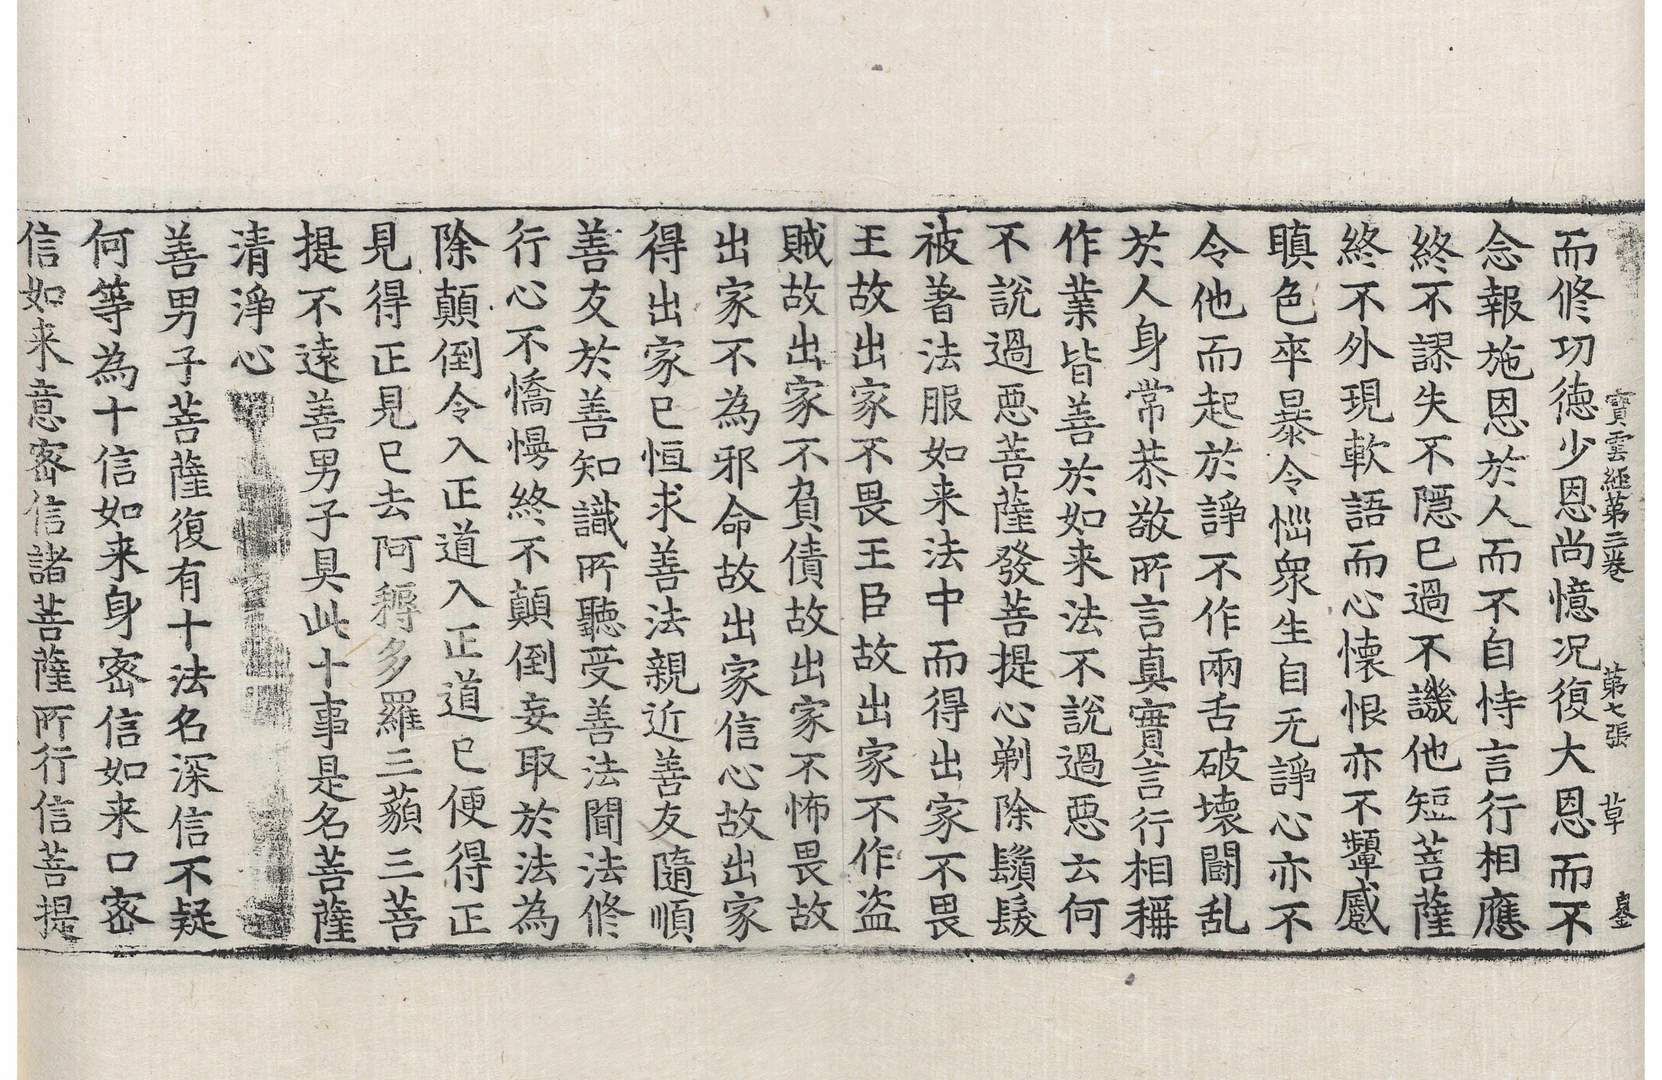 寶雲經第三卷　第七張　草
而修功德少恩尚憶况復大恩而不
念報施恩於人而不自恃言行相應
終不謬失不隱已過不譏他短菩薩
終不外現軟語而心懐恨亦不顰蹙
瞋色卒暴令惱衆生自无諍心亦不
令他而起於諍不作兩舌破壞鬪乱
於人身常恭敬所言真實言行相稱
作業皆善於如来法不說過惡云何
不說過惡菩薩發菩提心剃除鬚髮
被著法服如来法中而得出家不畏
王故出家不畏王臣故出家不作盗
賊故出家不負債故出家不怖畏故
出家不為邪命故出家信心故出家
得出家已恒求善法親近善友隨順
善友於善知識所聽受善法聞法修
行心不憍慢終不顛倒妄取於法為
除顛倒令入正道入正道已便得正
見得正見已去阿耨多羅三藐三菩
提不遠善男子具此十事是名菩薩
清淨心
善男子菩薩復有十法名深信不疑
何等為十信如来身密信如来口密
信如来意密信諸菩薩所行信菩提